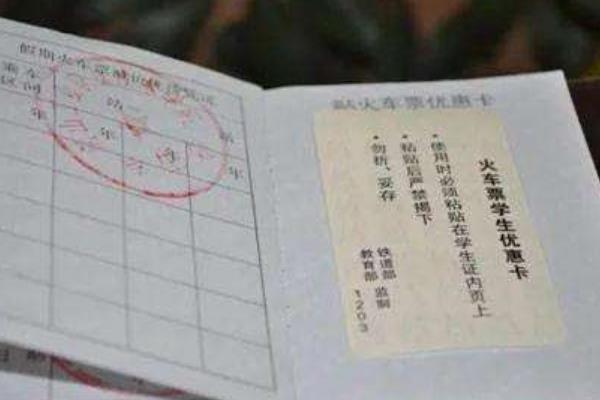 假期火车票
乘车
区间
站—
站
年
年
年
年
贴火车票优惠卡
火车票学生优惠卡
· 使用时必须粘贴在学生证内页上
· 粘贴后严禁揭下
· 勿折、妥存
铁道部
教育部
监制
1203